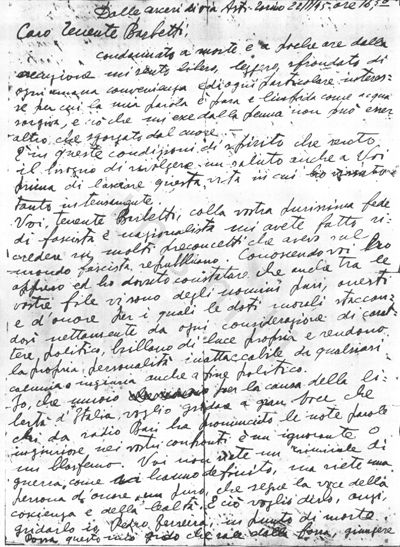 Dalle carceri di via Asti - Torino 22/1/45 - ore 16,30
Caro Tenente Barbetti,
condannato a morte e a poche ore dalla
esecuzione mi sento libero, leggero, sfrondato di
ogni umana convenienza e di ogni particolare interes-
se per cui la mia parola è pura e limpida come acqua
sorgiva, e ciò che mi esce dalla penna non può esser
altro che sgorgato dal cuore.
È in queste condizioni di spirito che sento
il bisogno di rivolgere un saluto anche a Voi
prima di lasciare questa vita in cui ho vissuto
tanto intensamente.
Voi, tenente Barbetti, colla vostra purissima fede
di fascista e nazionalista mi avete fatto ri-
credere in molti preconcetti che avevo sul
mondo fascista repubblicano. Conoscendo voi ho
appreso ed ho dovuto constatare che anche tra le
vostre file vi sono degli uomini puri, onesti
e d'onore per i quali le doti morali staccan-
dosi nettamente da ogni considerazione di carat-
tere politico, brillano di luce propria e rendono
la propria personalità inattaccabile da qualsiasi
calunnia o ingiuria anche a fine politico.
Io, che muoio per la causa della li-
bertà d'Italia, voglio gridare a gran voce che
chi da radio Bari ha pronunciato le note parole
ingiuriose nei vostri confronti è un ignorante o
un blasfemo. Voi non siete un criminale di
guerra, come vi hanno definito, ma siete una
persona d'onore, un puro, che segue la voce della
coscienza e della lealtà. E ciò voglio dirlo, anzi
gridarlo io, Pedro Ferreira, in punto di morte.
Possa questo mio grido che sale dalla fossa, giungere